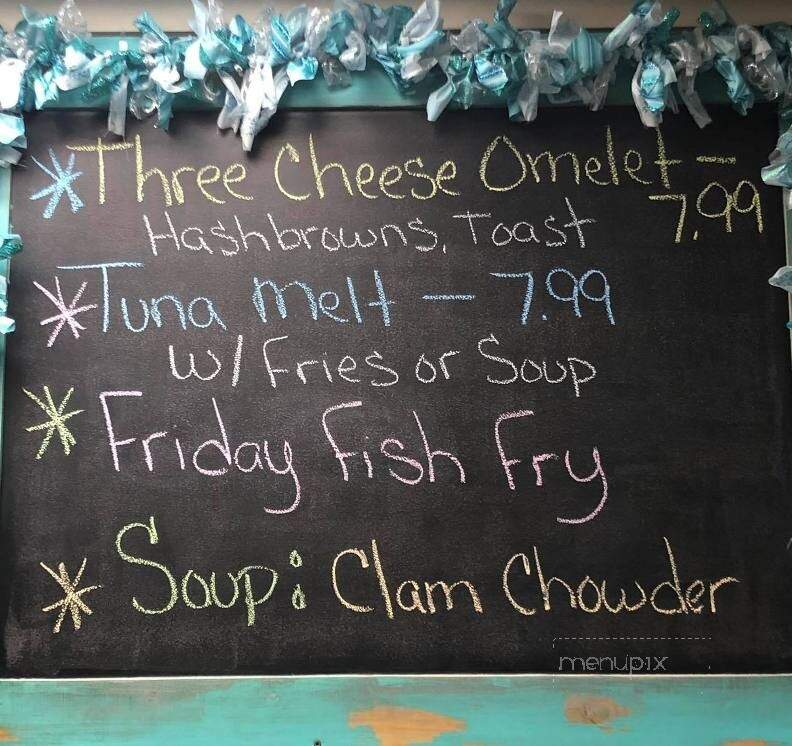 *Three Cheese Omelet - 7.99
Hashbrowns, Toast
*Tuna melt - 7.99
w/ Fries or Soup
*Friday Fish Fry
*Soup: Clam Chowder
menupix